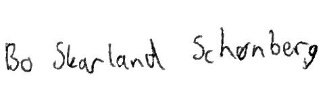 Bo Skarland Schønberg